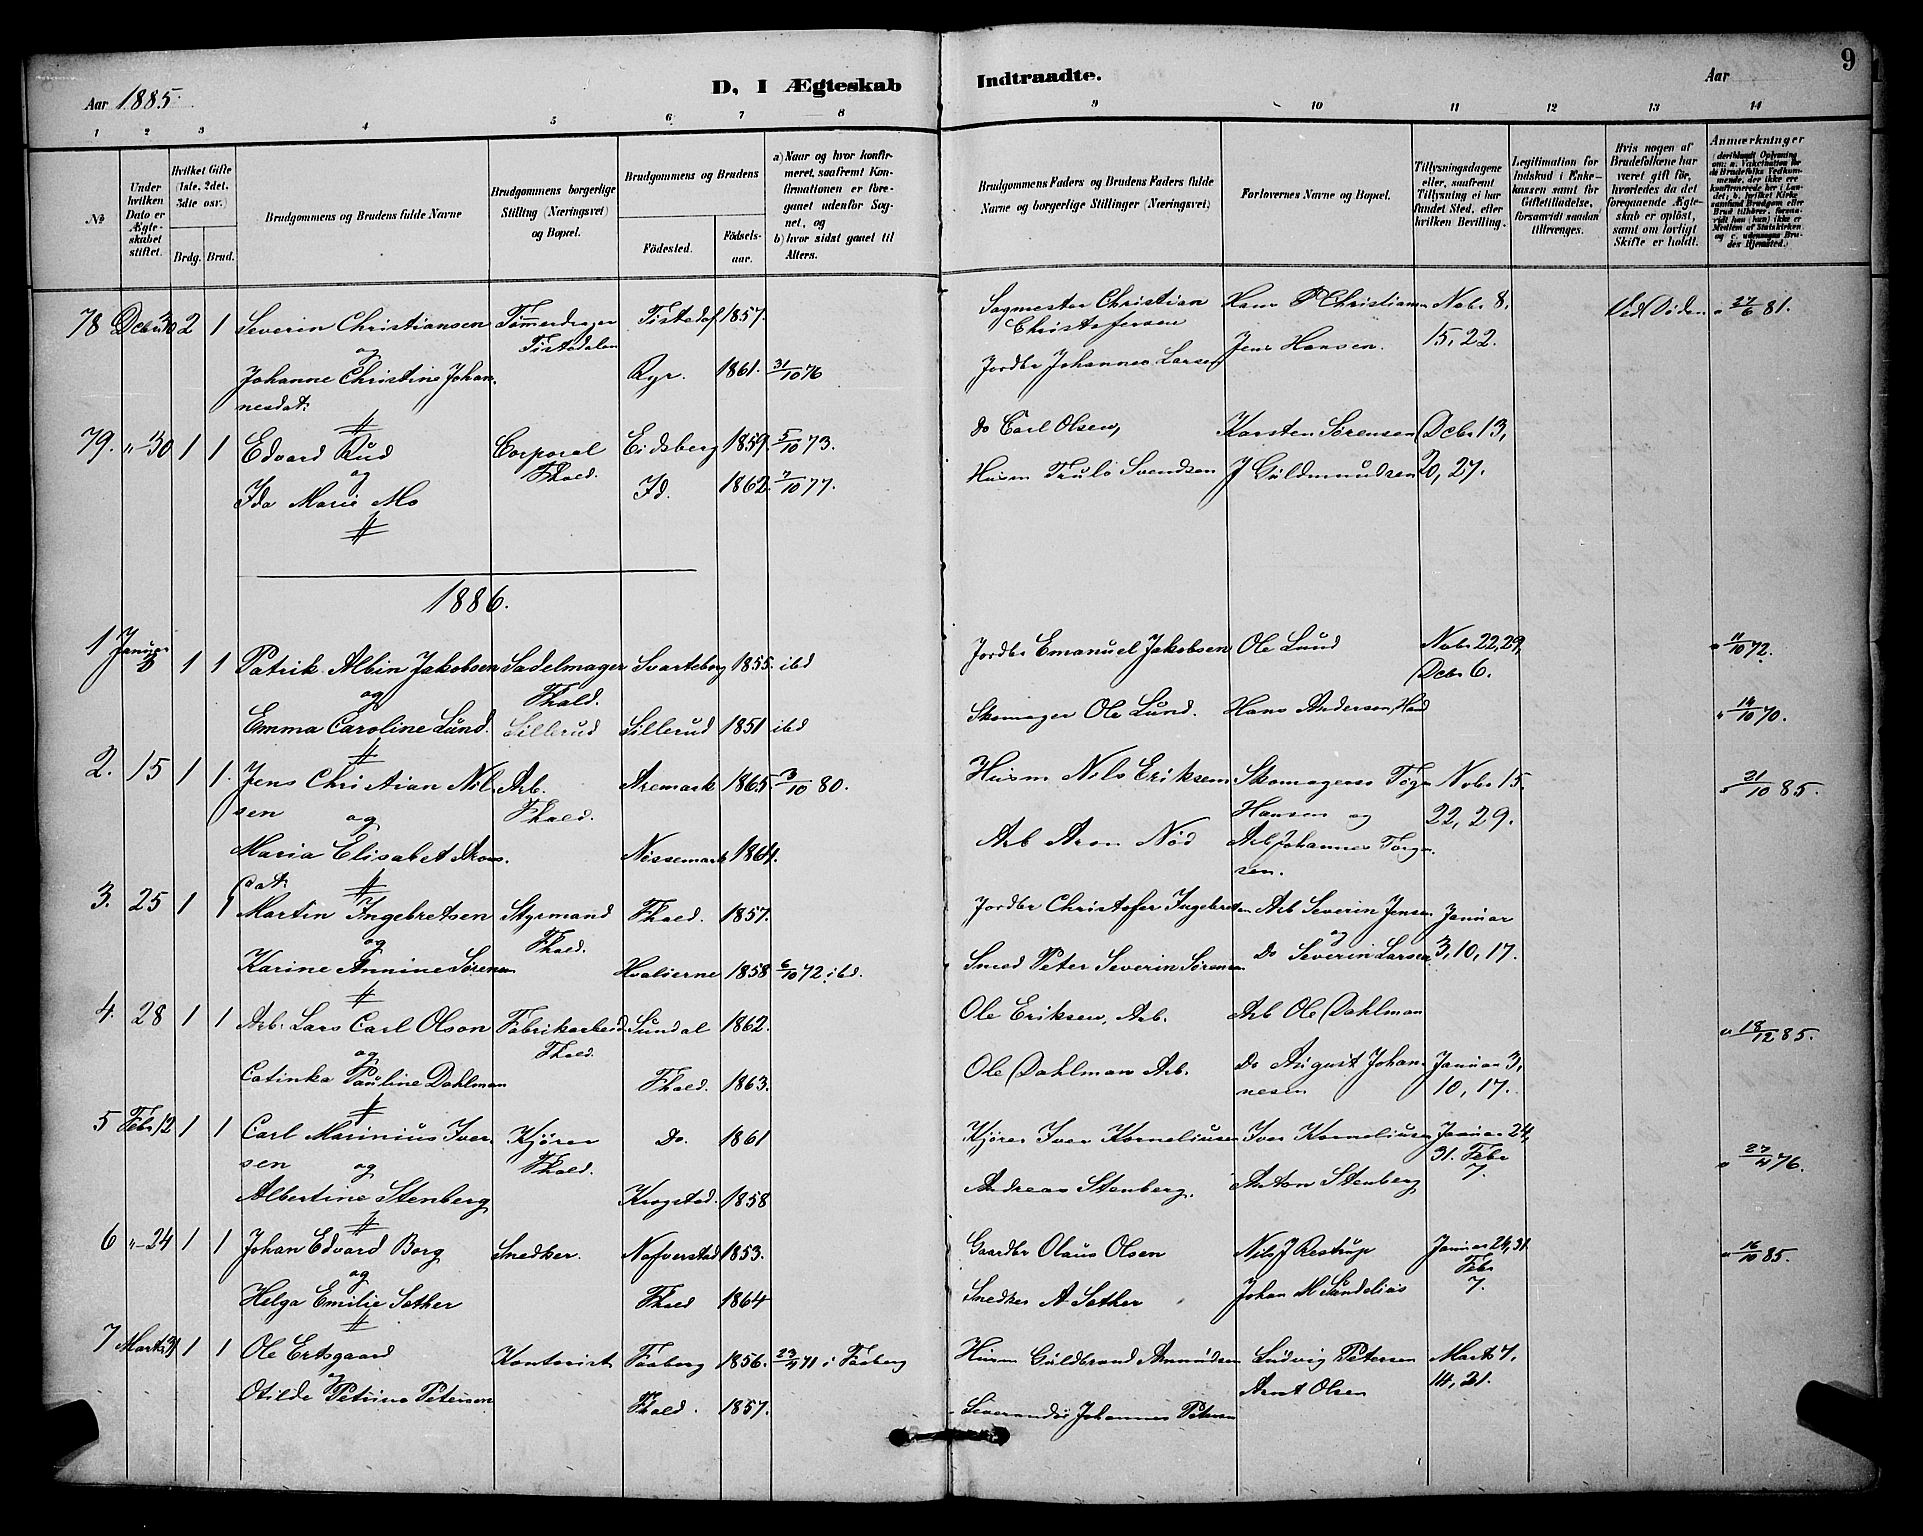 Aar 1885.
D, I Ægteskab Indtraadte.
Aar
9
1 2 3 4 5 6 7 8 9 10 11 12 13 14
№
Under hvilken Dato er Ægteskabet stiftet.
Hvilket Gifte (1ste, 2det, 3die osv.)
Brdg. Brud.
Brudgommens og Brudens fulde Navne
Brudgommens borgerlige Stilling (Næringsvei) og Bopæl.
Brudgommens og Brudens
Födested. Födselsaar.
a) Naar og hvor konfirmeret, saafremt Konfirmationen er foregaaet udenfor Sognet, og
b) hvor sidst gaaet til Alters.
Brudgommens Faders og Brudens Faders fulde Navne og borgerlige Stillinger (Næringsvei)
Forlovernes Navne og Bopæl.
Tillysningsdagene eller, saafremt Tillysning ei har fundet Sted, efter hvilken Bevilling.
Legitimation for Indskud i Enkekassen samt for Giftetilladelse, forsaavidt saadan tiltrænges.
Hvis nogen af Brudefolkene har været gift för, hvorledes da det foregaaende Ægteskab er oplöst, samt om lovligt Skifte er holdt.
Anmærkninger
78 Decbr 30 2 1 Severin Christiansen Tømmerdrager Tistedal 1857. Sagmester Christian Hans P Christiansen Novbr 8, Ved Døden 27/6 81.
og Tistedalen Christofersen Jens Hansen. 15, 22.
Johanne Christine Johan- Ryr. 1861. 31/10 76 Jordbr Johannes Larsen
nesdat:
79. "-30 1 1 Edvard Rud Corporal Eidsberg 1859. 5/10 73. do Carl Olsen, Karsten Sørensen Decbr 13,
og Fhald.
Ida Marie Mo Id. 1862. 7/10 77. Husm Truls Svendsen J Guldmundsen 20, 27.
1886.
1 Januar 1 1 Patrik Albin Jakobsen Sadelmager Svarteborg 1855. ibd Jordbr Emanuel Jakobsen Ole Lund Novbr 22, 29, 11/10 72.
og Fhald. Decbr 6.
Emma Caroline Lund. Sillerud Sillerud 1851 ibd Skomager Ole Lund. Hans Andersen 14/10 70.
2. 15 1 1. Jens Christian Nil- Arb. Aremark 1865. 3/10 80. Husm Nils Eriksen Skomageren Novbr 15. 21/10 85.
sen og Fhald. Hansen og 22, 29.
Maria Elisabet Arons- Nössemark 1864. Arb Aron Nöd Arb Johannes Torge-
dat: sen.
3. 25 1 1 Martin Ingebretsen Styrmand Fhald. 1857. Jordbr Christofer Ingebretsen Arb Severin Jensen Januar
og Fhald. og
Karine Annine Sörensen Hvalöerne 1858 6/10 72. ibd. Smed Peter Severin Sörensen Do Severin Larsen 3, 10, 17.
4. 28 1 1 Arb. Lars Carl Olson Fabrikarbeid Sundal 1862. Ole Eriksen, Arb. Arb Ole Dahlman 18/12 85.
og Fhald.
Catinka Pauline Dahlman Fhald. 1863. Ole Dahlman Arb. Do August Johan- Januar 3,
nesen 10, 17.
5 Febr 12 1 1 Carl Marinius Iver- Kjörer Do. 1861 Kjörer Iver Korneliusen Iver Korneliusen Januar 24,
sen og Fhald. 31. Febr 27/4 76.
Albertine Stenberg Krogstad. 1858 Andreas Stenberg. Anton Stenberg 7.
6 "-24 1 1 Johan Edvard Borg Snedker. Nafverstad 1853. Gaardbr Olaus Olsen Nils J Restrup Januar 24, 31 16/10 85.
og Febr
Helga Emilie Sather Fhald 1864 Snedker A Sather Johan M Sandelius 7.
7 Marts 31 1 1 Ole Ertsgaard Kontorist Faaberg 1856. 23/4 71 i Faaberg Husm Guldbrand Amundsen Ludvig Petersen Marts 7,
og
Otilde Petrine Petersen Fhald. 1857. Leverandör Johannes Petersen Arnt Olsen 14, 21.